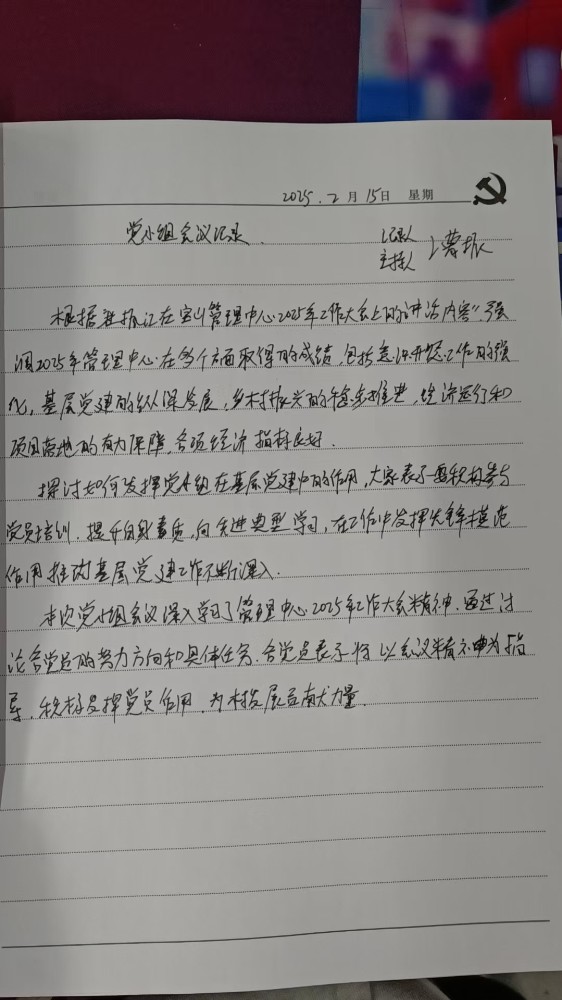 2025.2月15日 星期
党小组会议记录.
记录人
主持人
根据 在宝山管理中心2025年工作大会上的讲话内容"强
调2025年管理中心在多个方面取得的成绩,包括意识形态工作的强
化,基层党建的纵深发展,乡村振兴的稳步推进,经济运行和
项目落地的有力保障,各项经济指标良好.
探讨如何发挥党小组在基层党建中的作用,大家表示要积极参与
党员培训.提升自身素质,向先进典型学习,在工作中发挥先锋模范
作用推动基层党建工作不断深入.
本次党小组会议深入学习了管理中心2025年工作大会精神.通过讨
论各党员的努力方向和具体任务.各党员表示将以会议精神为指
导.积极发挥党员作用.为 发展贡献力量.